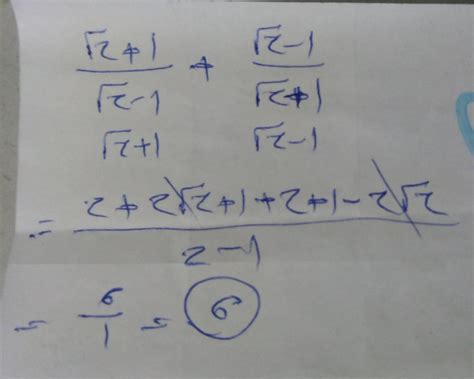 √2+1 + √2-1
√2-1 √2+1
√2+1 √2-1
= 2+2√2+1+2+1-2√2
2-1
= 6/1 = 6